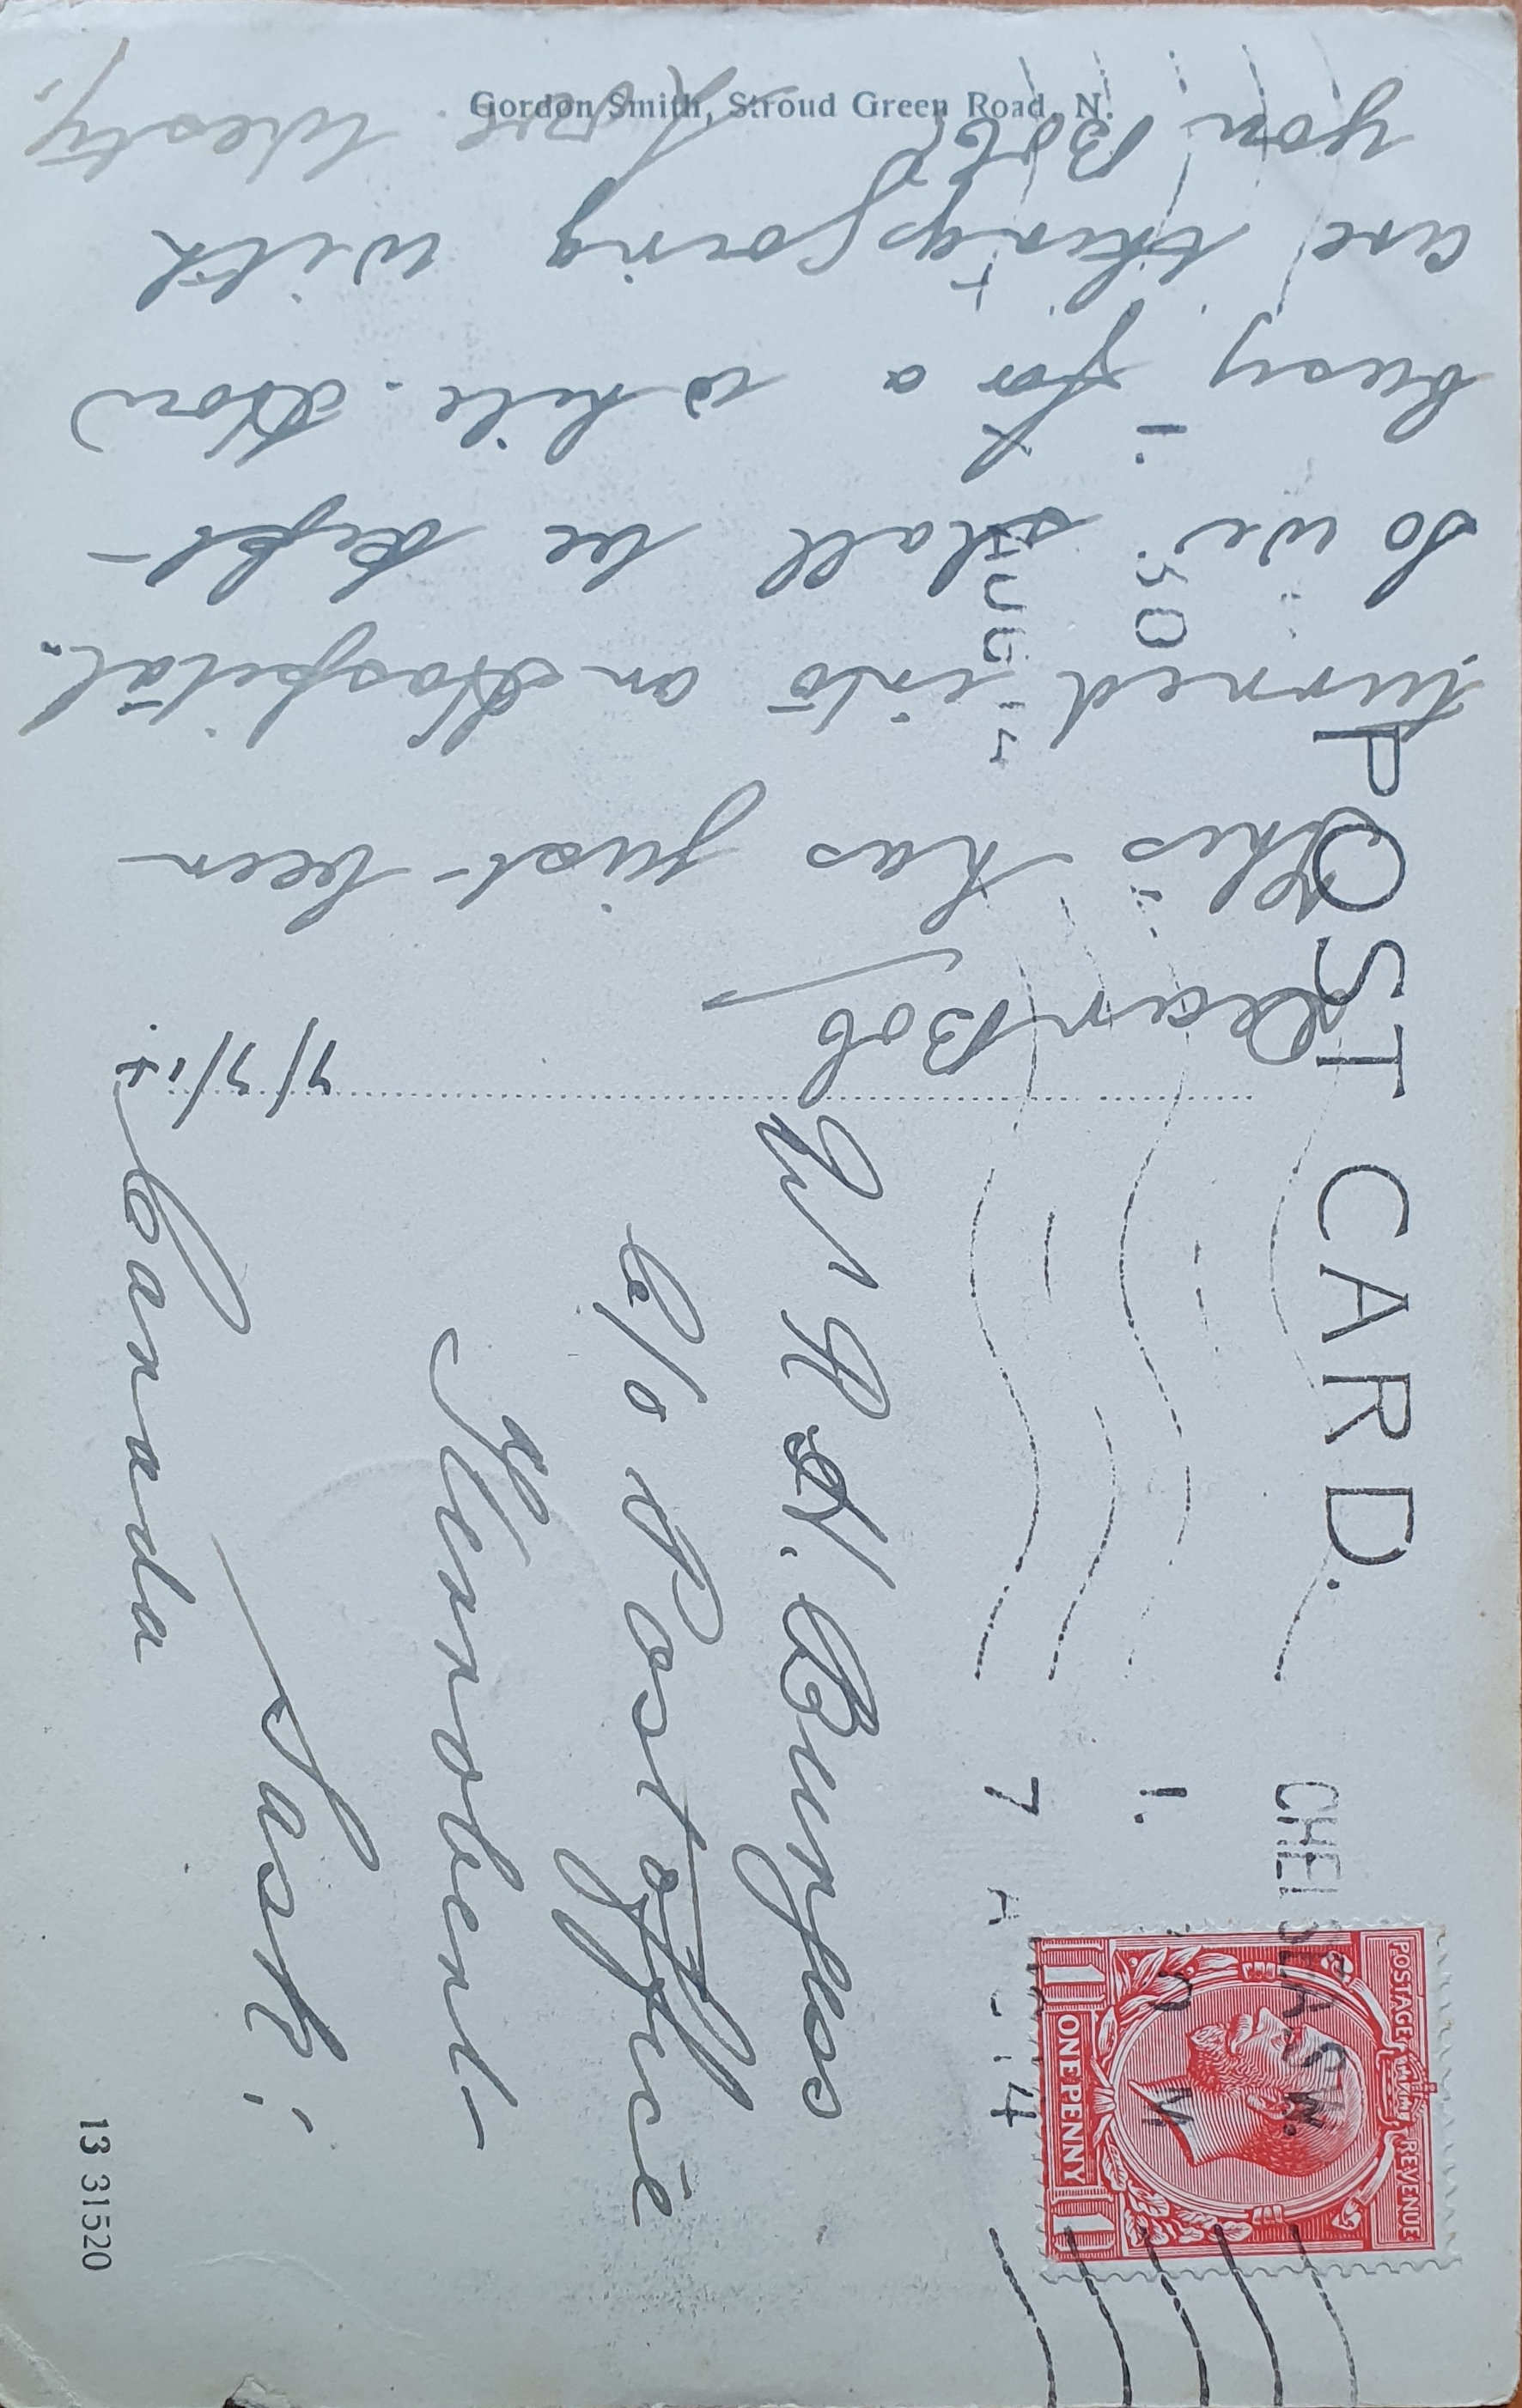 POST CARD.
Gordon Smith, Stroud Green Road, N.
CHELSEA S.W.
7 A 14
AUG 14
7/7/14
Dear Bob
This has just been
turned into an Hospital.
So we shall be kept
busy for a while. How
are things going with
you Bob?
Westy.
W H H. Burfess
C/o Post Office
Sask;
Canada
POSTAGE REVENUE
ONE PENNY
13 31520